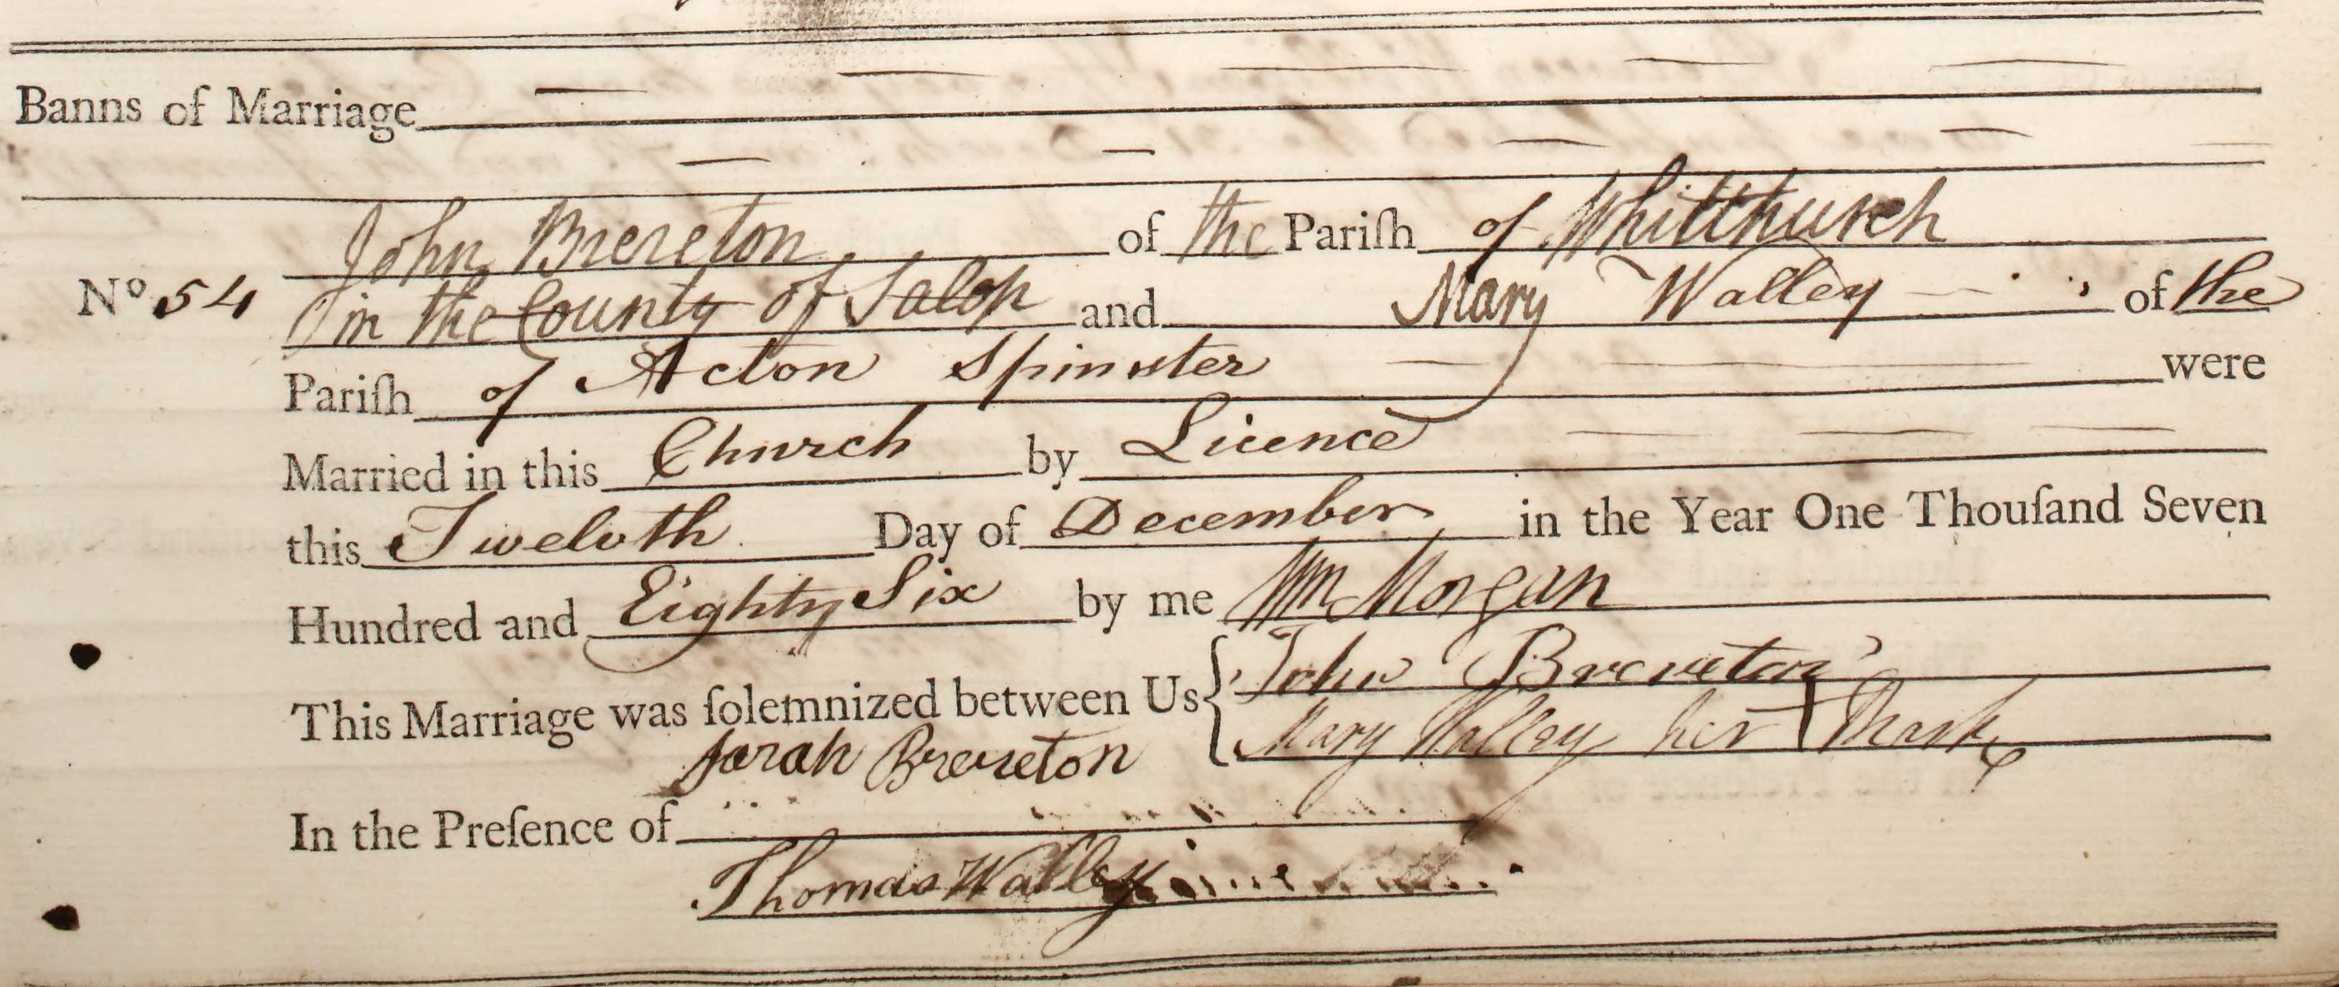 Banns of Marriage
John Brereton of the Pariſh of Whitchurch
No 54 in the County of Salop and Mary Walley of the
Pariſh of Acton Spinster were
Married in this Church by Licence
this Twelvth Day of December in the Year One Thouſand Seven
Hundred and Eighty Six by me Wm Morgan
This Marriage was ſolemnized between Us { John Brereton
Mary Walley her + Mark
Sarah Brereton
In the Preſence of
Thomas Walley